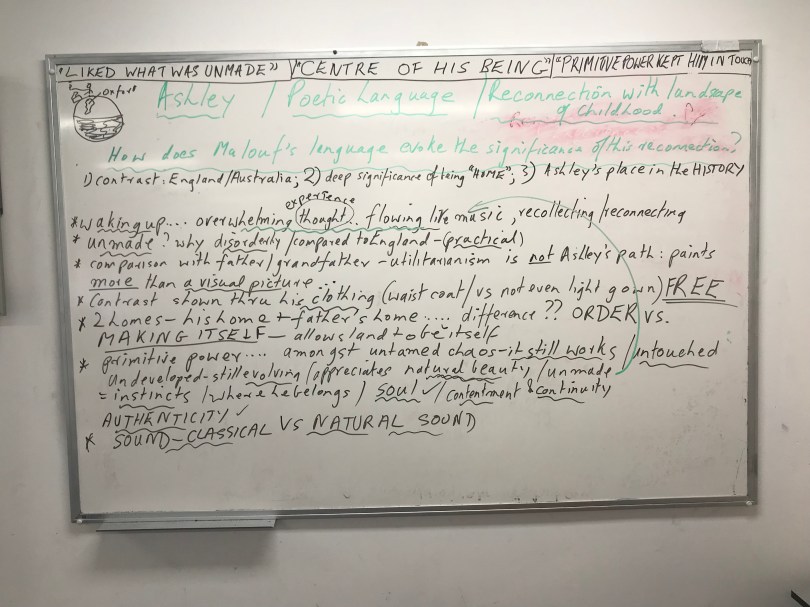 "LIKED WHAT WAS UNMADE" / "CENTRE OF HIS BEING" / "PRIMITIVE POWER KEPT HIM IN TOUCH
Ashley / Poetic Language / Reconnection with landscape
of childhood.
How does Malouf's language evoke the significance of this reconnection?
1) contrast: England/Australia; 2) deep significance of being "HOME"; 3) Ashley's place in the HISTORY
experience
* waking up.... overwhelming thought.. flowing like music, recollecting/reconnecting
* unmade? why disorderly/compared to England - (practical)
* comparison with father/grandfather - utilitarianism is not Ashley's path: paints
more than a visual picture...
* Contrast shown thru his clothing (waist coat/vs not even light gown) FREE
* 2 homes - his home + father's home.... difference?? ORDER VS.
MAKING ITSELF - allows land to be itself
* primitive power.... amongst untamed chaos - it still works/untouched
undeveloped - still evolving/appreciates natural beauty/unmade
= instincts/where he belongs/ SOUL ✓/contentment & continuity
AUTHENTICITY ✓
* SOUND - CLASSICAL VS NATURAL SOUND